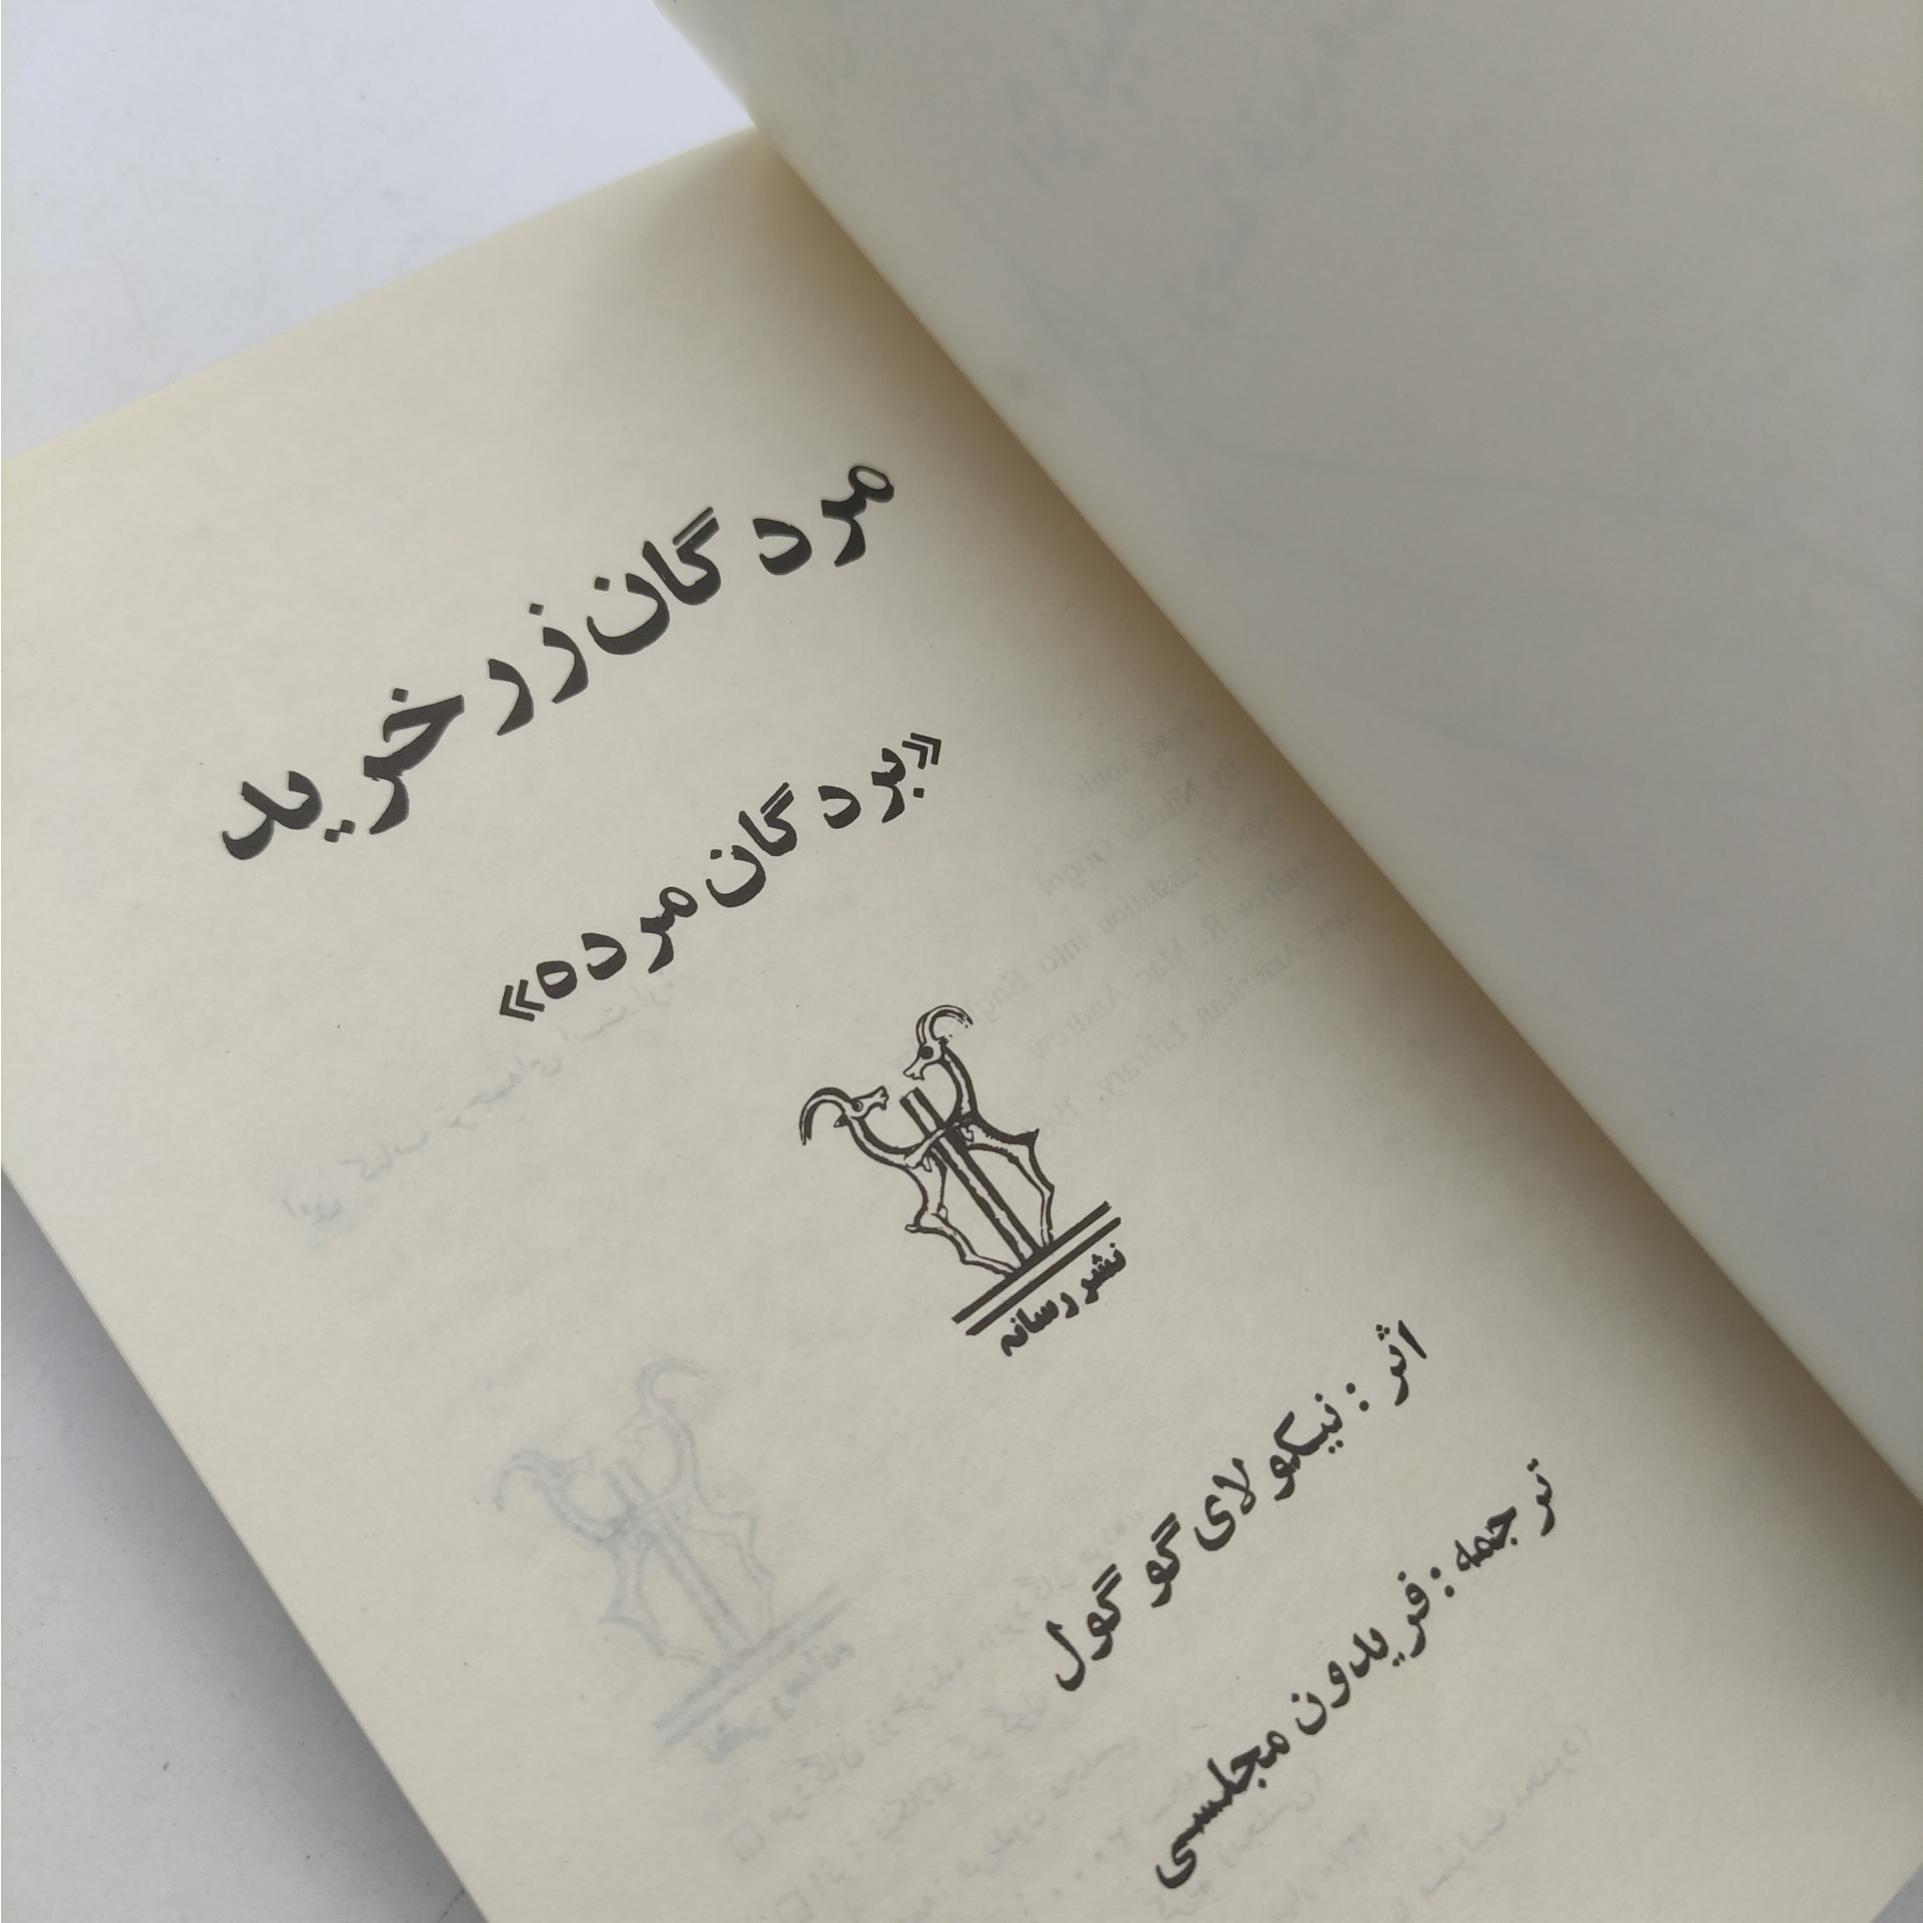 مردگان زرخرید
«بردگان مرده»
نشر رسانه
اثر : نیکولای گوگول
ترجمه : فریدون مجلسی